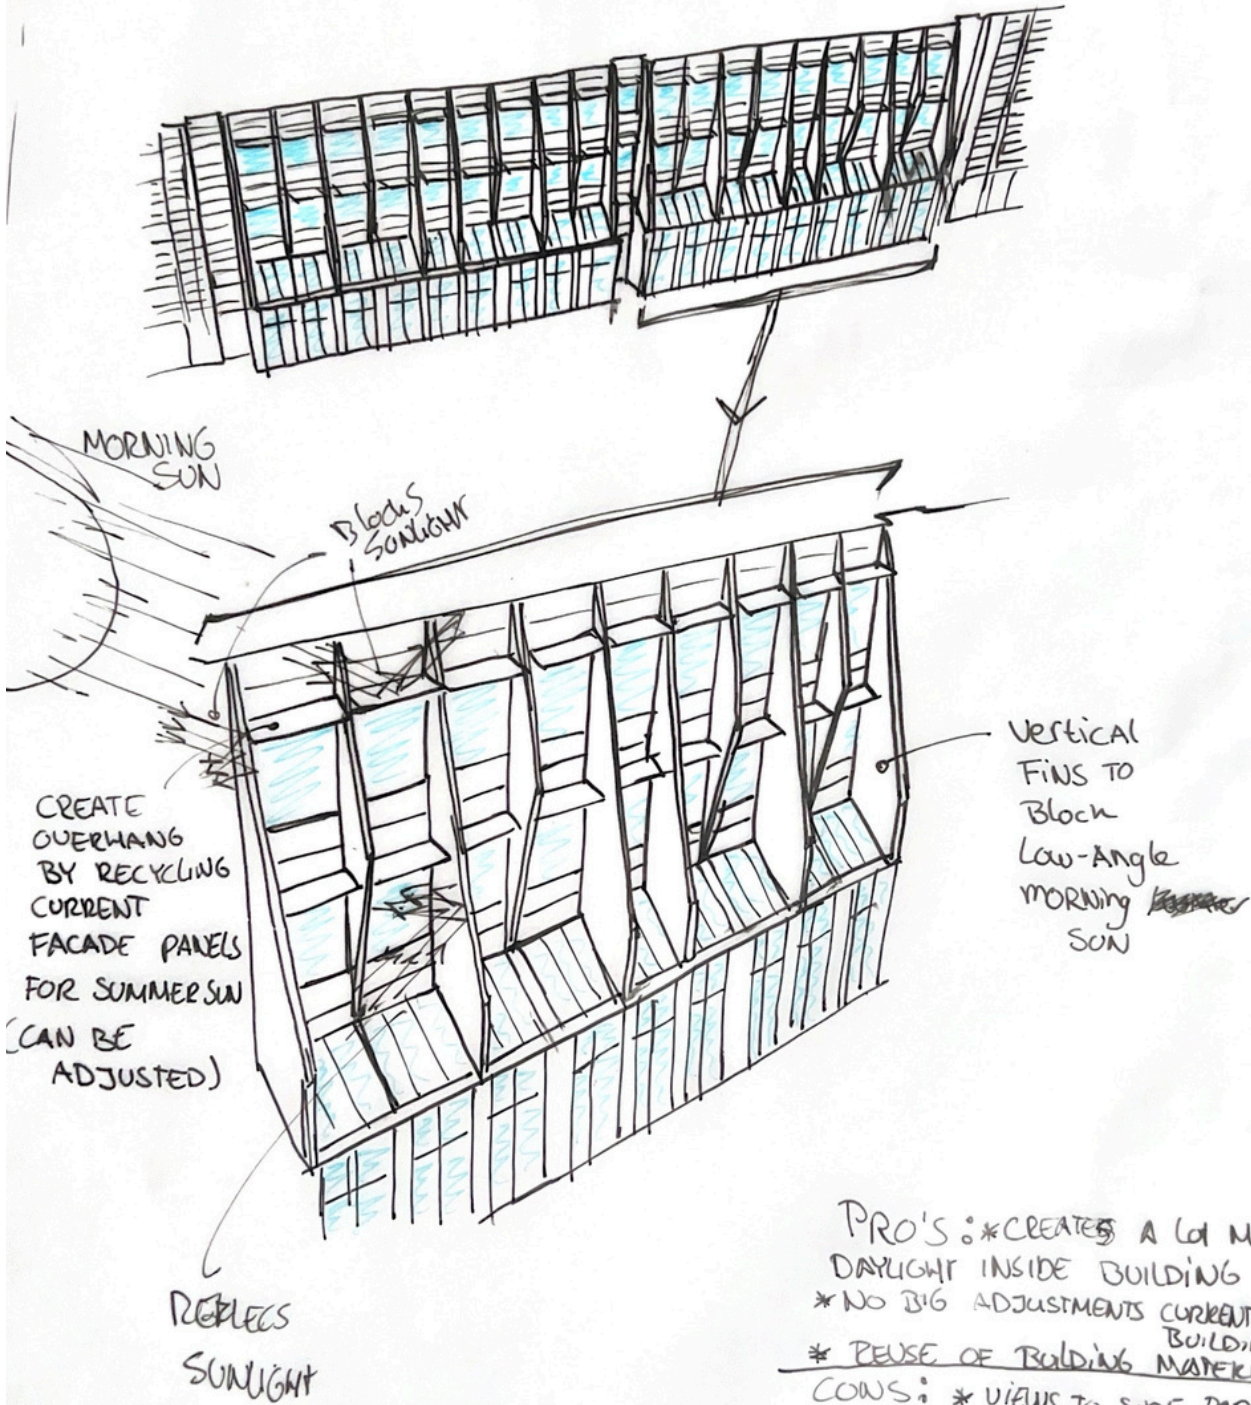 MORNING
SUN
Blocks
SUNLIGHT
CREATE
OVERHANG
BY RECYCLING
CURRENT
FACADE PANELS
FOR SUMMER SUN
(CAN BE
ADJUSTED)
Vertical
Fins to
Block
Low-Angle
morning
SUN
REFLECS
SUNLIGHT
PRO'S: * CREATES A LOT M
DAYLIGHT INSIDE BUILDING
* NO BIG ADJUSTMENTS CURRENT
BUILDI
* REUSE OF BUILDING MATER
CONS: * VIEWS TO